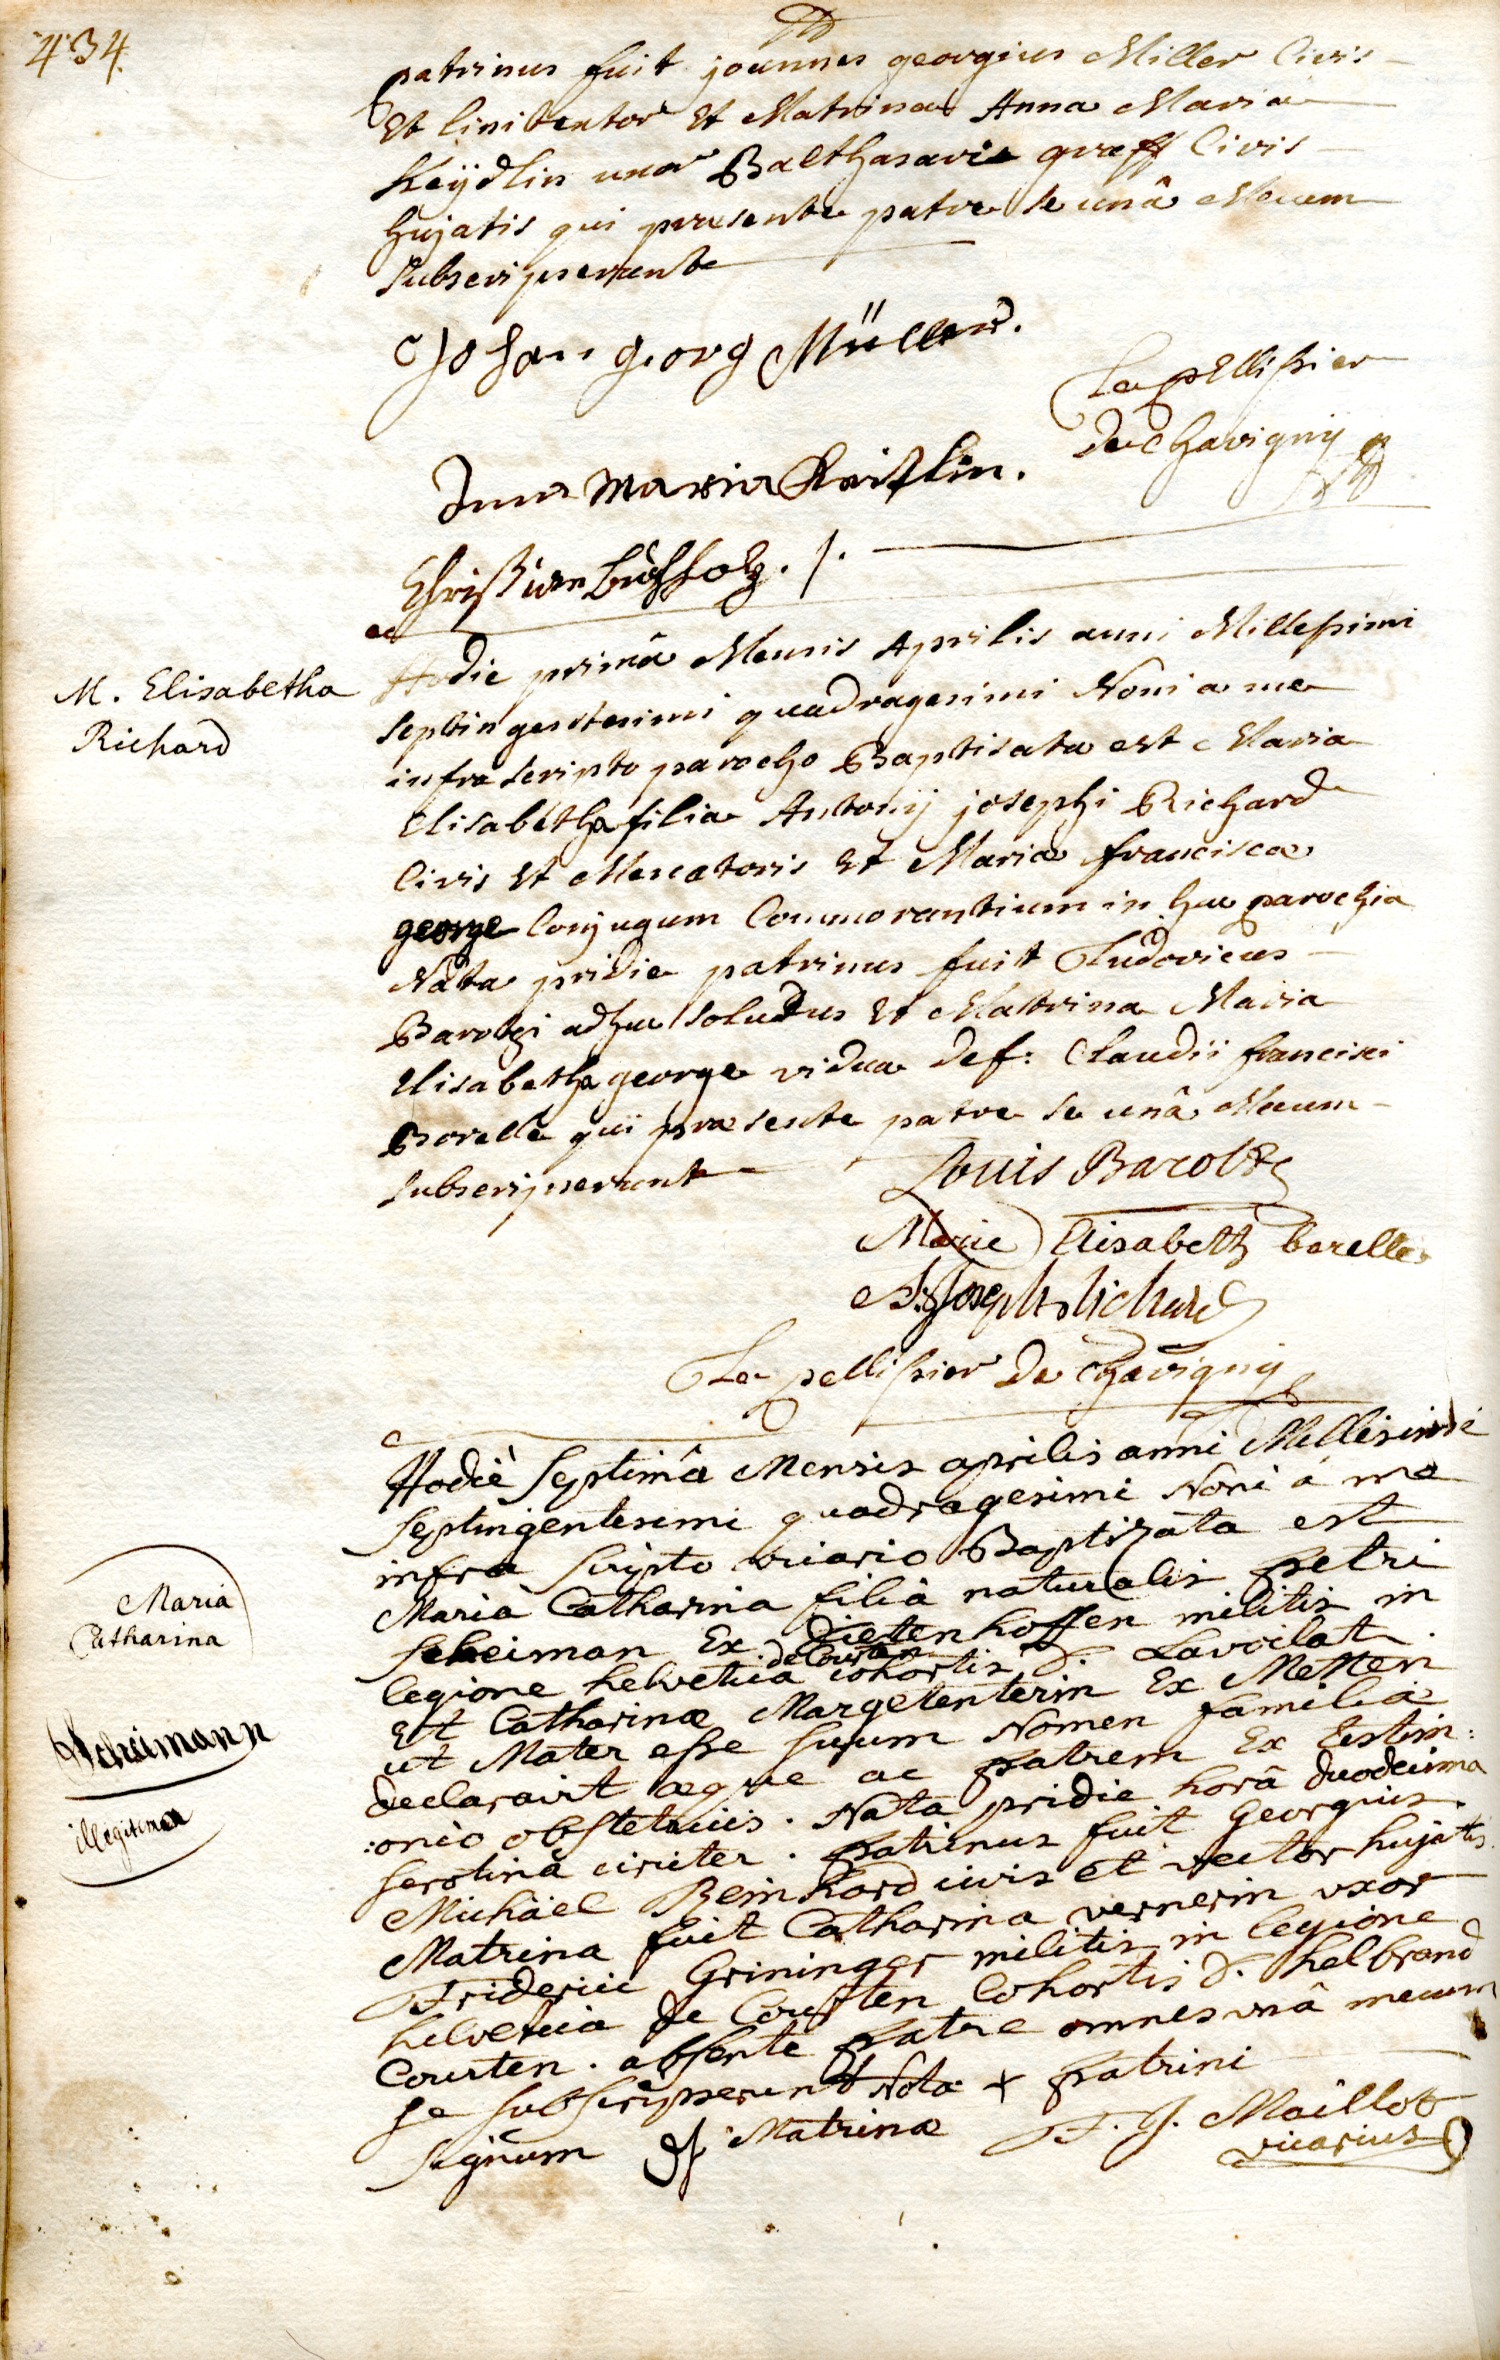 434.
patrinus fuit joannes georgius Miller Civis
Et linitextor Et Matrina Anna Maria
Keÿdlin uxor Balthasaris graff Civis
hujatis qui praesente patre se unâ Mecum
Subscripserunt
Johan georg Müller.
Le pEllissier
de chavignÿ
Anna Maria Keitlin.
Christian buchholtz.
M. Elisabetha
Richard
Hodie primâ Mensis Aprilis anni Millessimi
septingentesimi quadragesimi Noni a me
infra scripto parocho Baptisata est Maria
Elisabetha filia Antonij josephi Richard
Civis et Mercatoris et Mariae franciscae
george Conjugum Commorantium in hac parochia
Nata pridie patrinus fuit Ludovicus
Barotzi adhuc solutus Et Matrina Maria
Elisabetha george vidua def: Claudii francisci
Borelle qui praesente patre se unâ Mecum
subscripserunt
Louis Barotzi
Marie Elisabeth borelle
A. Joseph Richard
Le pellissier de chavignij
Maria
Catharina
Scheimann
illegitima
Hodiè Septimâ Mensis aprilis anni Millesimi
Septingentesimi quadragesimi Noni à me
infra scripto vicario Baptizata est
Maria Catharina filia naturalis petri
scheiman Ex Dietenhoffen militis in
legione helvetica de Courten cohortis d. Lavoilat.
Et Catharinae Margelenterin Ex Metten
ut Mater esse suum Nomen familia
declaravit aeque ac patrem Ex testim:
:onio obstetricis. Nata pridie horâ duodecima
serotinâ circiter. patrinus fuit Georgius
Michäel Reinhard civis et vector hujatis.
Matrina fuit Catharina vernerin uxor
Friderici Grininger militis in legione
helvetica de Courten Cohortis d. helbrand
Courten. absente patre omnes unâ mecum
se subscripserunt Nota + patrini
signum Matrinae F. J. Maillot
vicarius